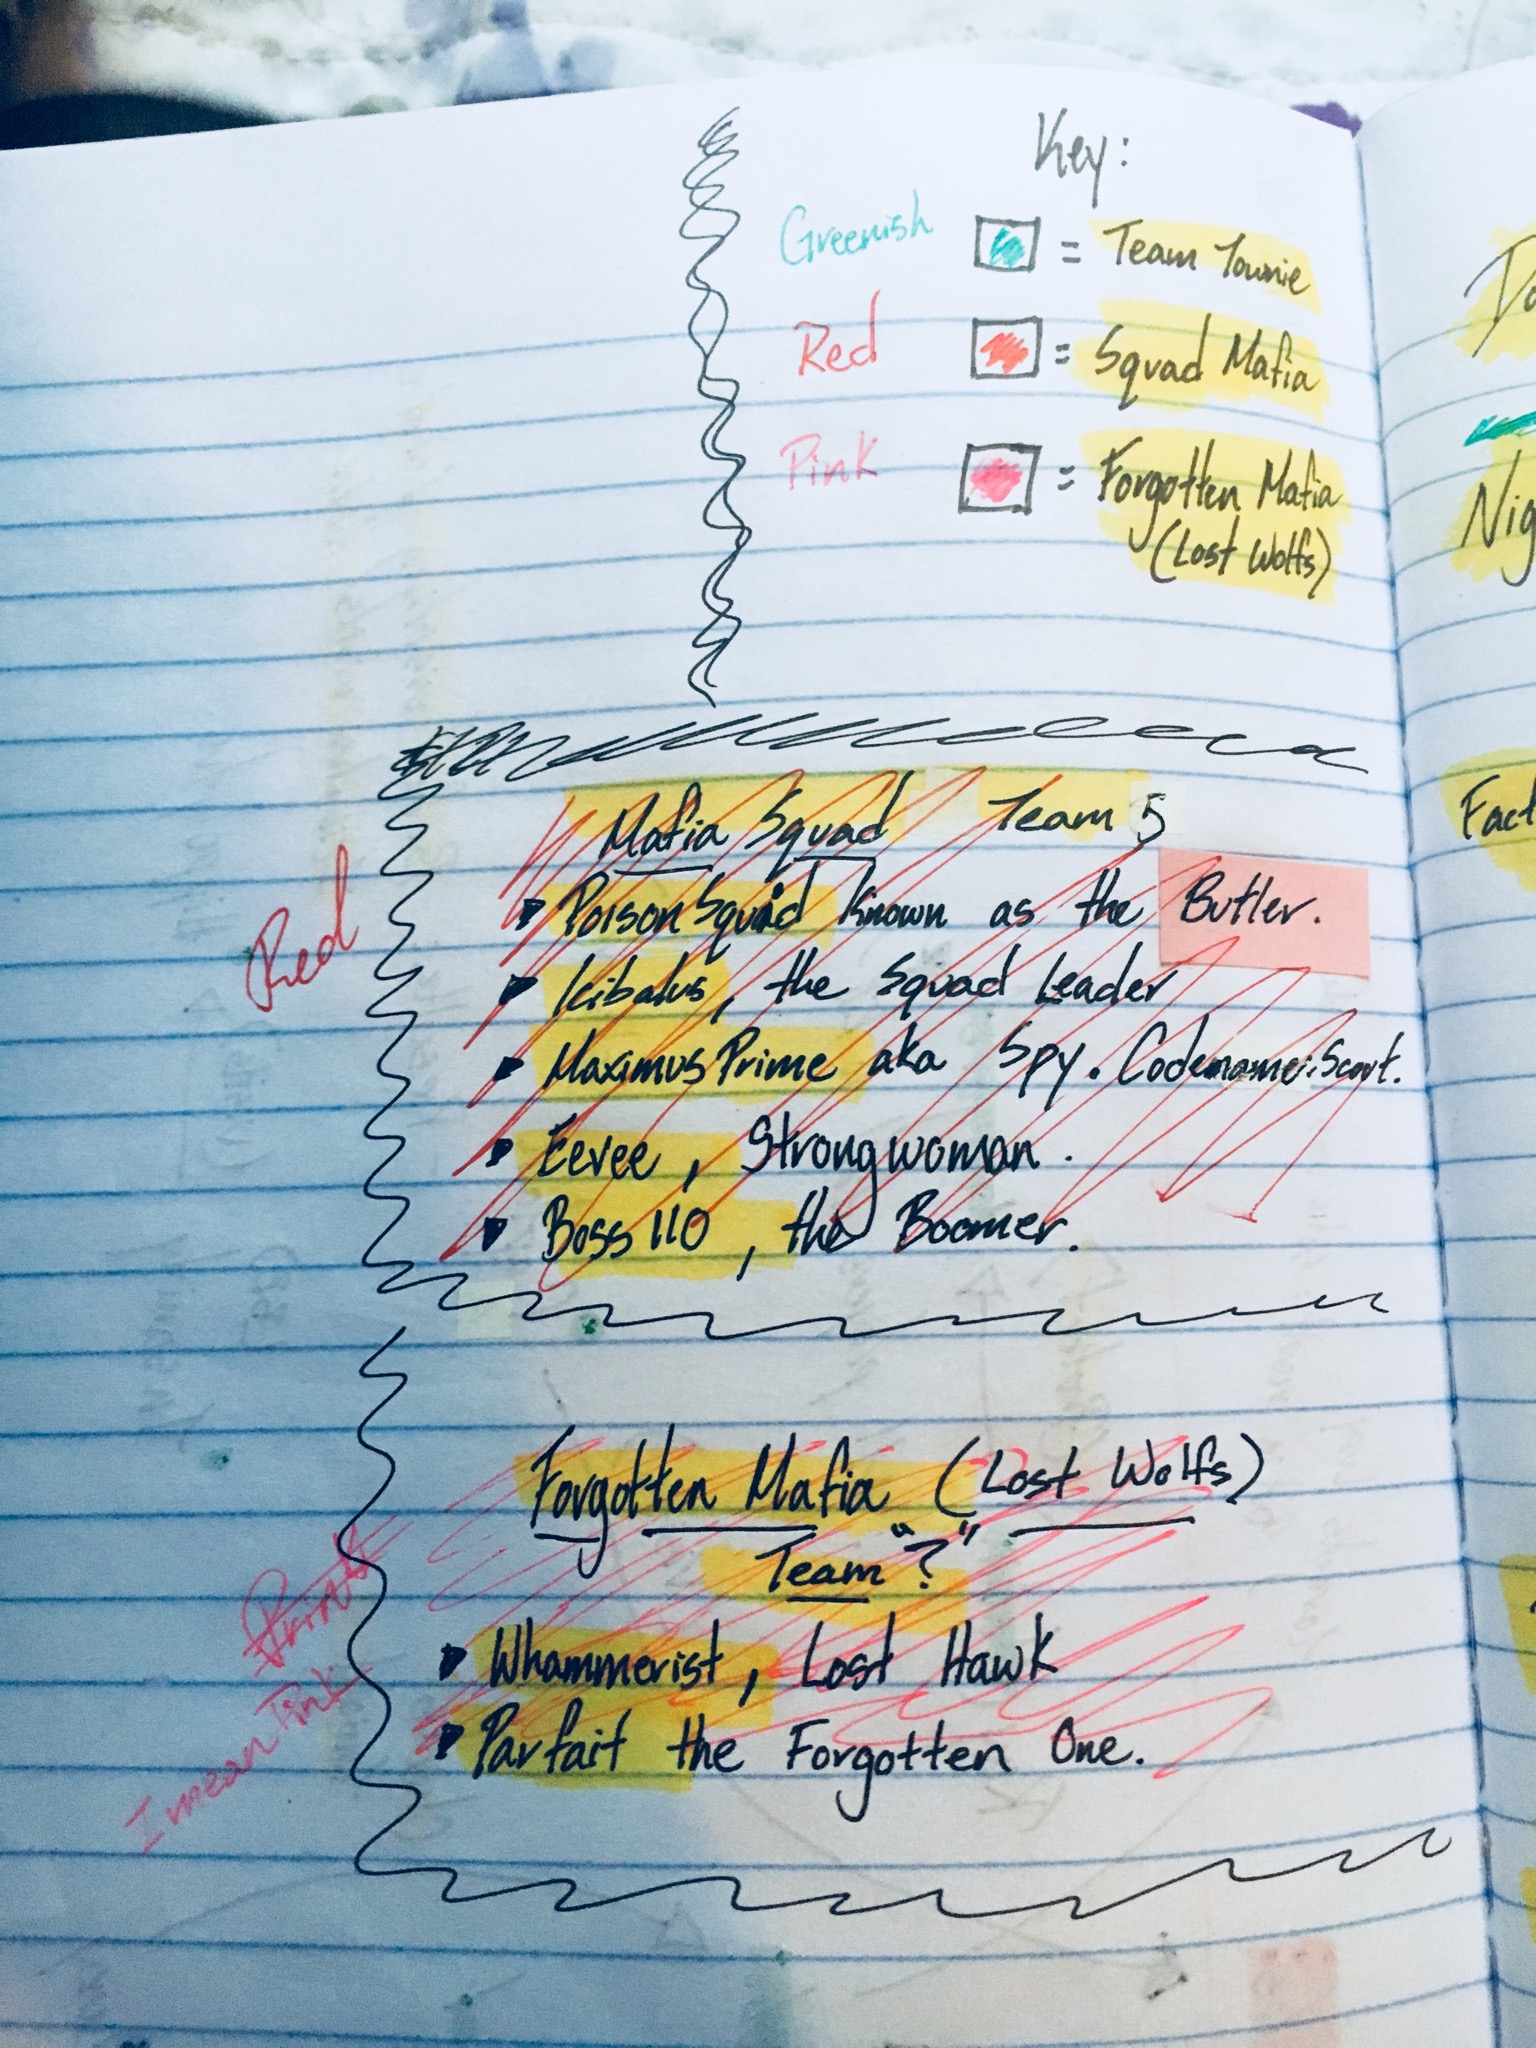 Key:
Greenish = Team Townie
Red = Squad Mafia
Pink = Forgotten Mafia
(Lost Wolfs)
Mafia Squad Team 5
Red
PoisonSquid known as the Butler.
Icibalus, the Squad Leader
MaximusPrime aka Spy. Codename:Scout.
Eevee, Strongwoman.
Boss110, the Boomer.
Forgotten Mafia (Lost Wolfs)
Team "?"
Whammerist, Lost Hawk
Parfait the Forgotten One.
I mean Pink
Nig
Fact